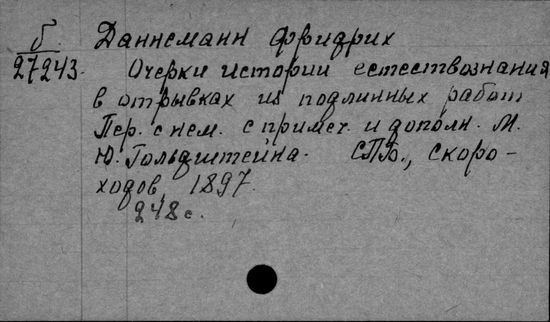 б. Даннеманн Фридрих
27243. Очерки истории естествознания
в отрывках из подлинных работ
Пер. с нем. с примеч. и дополн. М.
Ю. Гольдштейна. СПБ., Скоро-
ходов, 1897.
248 с.